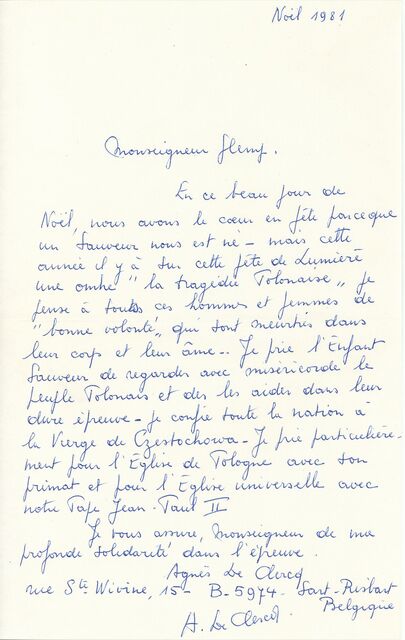 Noël 1981
Monseigneur Glemp.
En ce beau jour de
Noël, nous avons le cœur en fête parceque
un Sauveur nous est né - mais cette
année il y à sur cette fête de Lumière
une ombre "la tragédie Polonaise" je
pense à toutes ces hommes et femmes de
"bonne volonté" qui sont meurtris dans
leur corps et leur âme -. Je prie l'Enfant
Sauveur de regarder avec miséricorde le
peuple Polonais et des les aider dans leur
dure épreuve - je confie toute la nation à
la Vierge de Czestochowa - Je prie particulière-
ment pour l'Église de Pologne avec son
primat et pour l'Église universelle avec
notre Pape Jean-Paul II
Je vous assure, Monseigneur de ma
profonde solidarité dans l'épreuve.
Agnès De Clercq
rue Ste Wivine, 15 - B-5974 - Sart-Risbart
Belgique
A. De Clercq